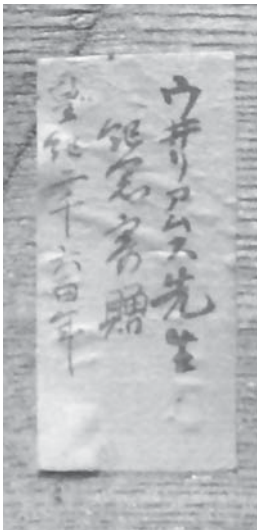 ウ井リアムス先生
紀念寄贈
皇紀二千六百四年